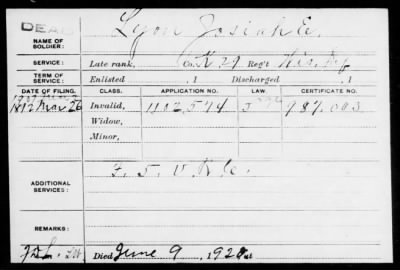 DEAD
NAME OF SOLDIER: Lyon Josiah E.
SERVICE: Late rank, Co. K 29 Reg't Wis. Inf
TERM OF SERVICE: Enlisted , 1 Discharged , 1
DATE OF FILING. CLASS. APPLICATION NO. LAW. CERTIFICATE NO.
Mar 26 Invalid, 1102,574 987.003
Widow,
Minor,
ADDITIONAL SERVICES:
REMARKS:
Died June 9, 1920 at